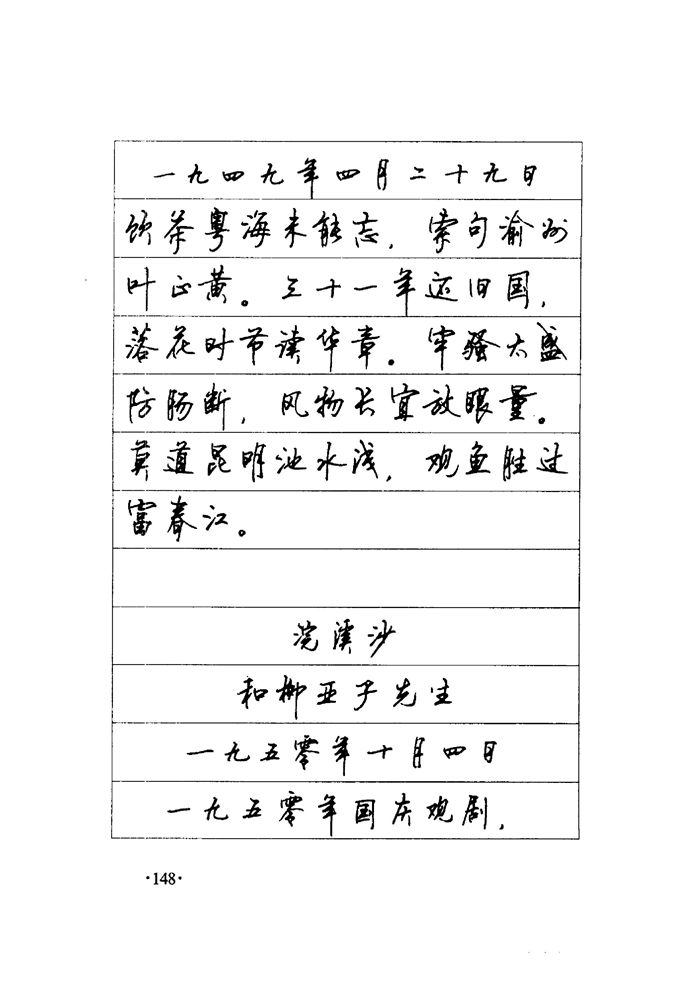 一九四九年四月二十九日
饮茶粤海未能忘，索句渝州
叶正黄。三十一年还旧国，
落花时节读华章。牢骚太盛
防肠断，风物长宜放眼量。
莫道昆明池水浅，观鱼胜过
富春江。
浣溪沙
和柳亚子先生
一九五零年十月四日
一九五零年国庆观剧，
·148·